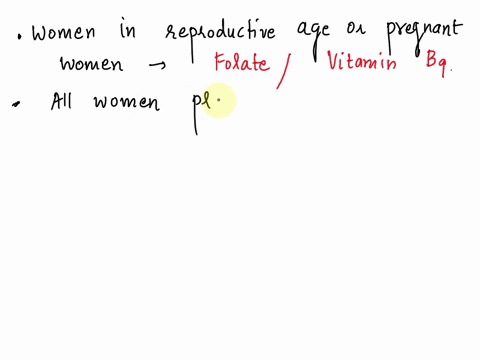 . Women in reproductive age or pregnant
women → Folate / Vitamin B9.
• All women pl